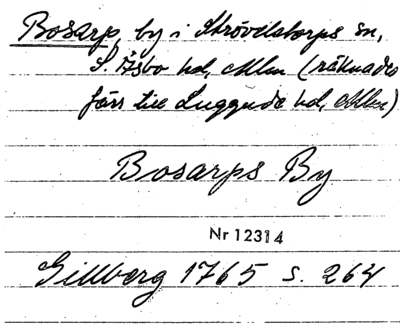 Bosarp, by i Strövelstorps sn,
S. Åsbo hd, Mlm (räknades
förr till Luggude hd, Mlm)
Bosarps By
Nr 12314
Gillberg 1765 s. 264